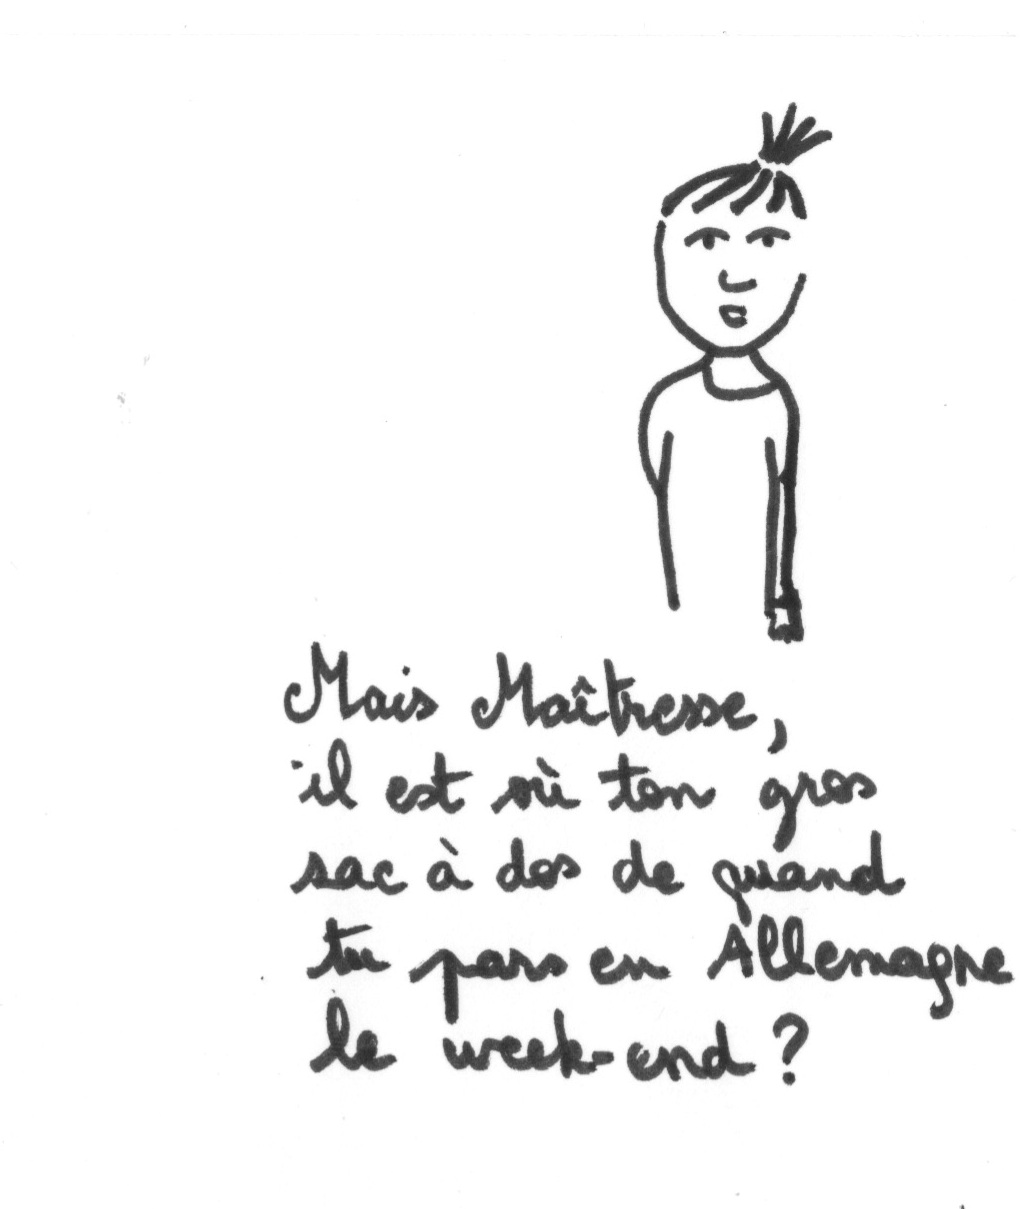 Mais Maîtresse,
il est où ton gros
sac à dos de quand
tu pars en Allemagne
le week-end ?